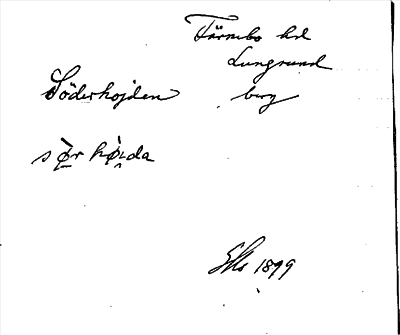 Färnebo hd
Lungsund
Söderhöjden berg
sø̀r hø̀ɩda
1899